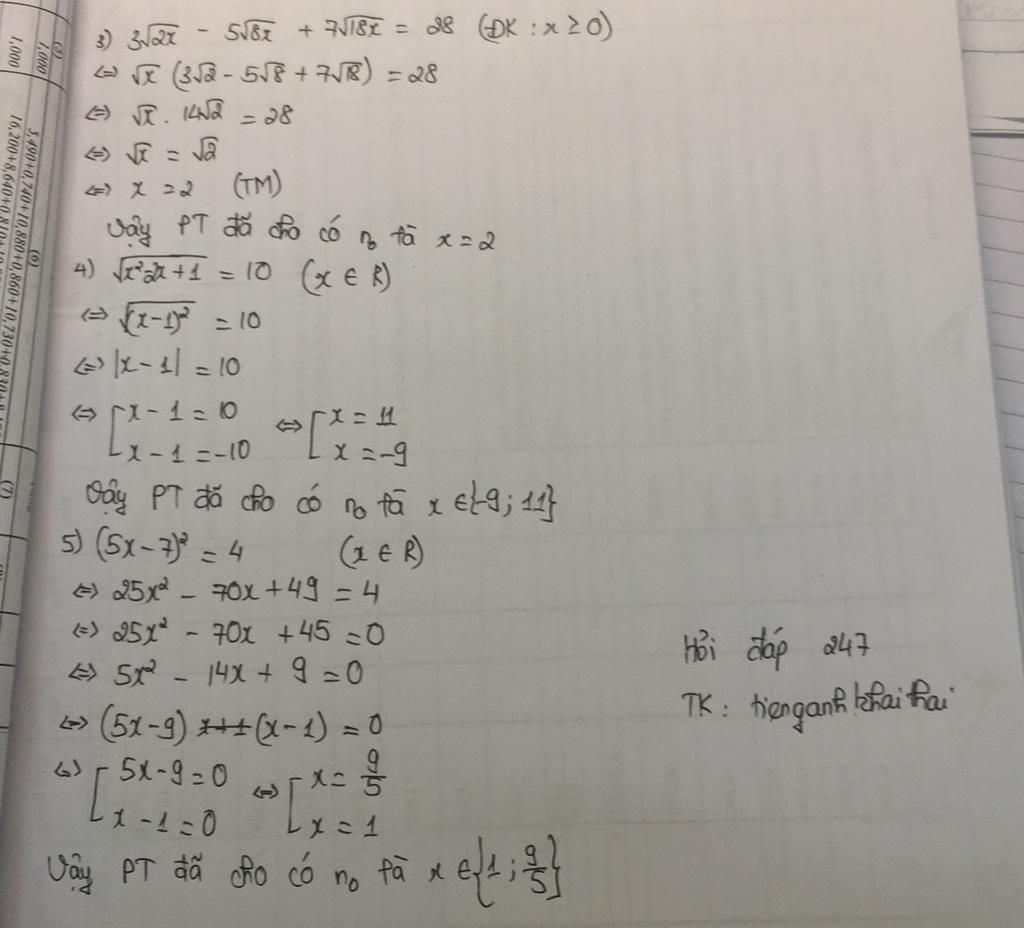 3) 3√2x - 5√8x + 7√18x = 28 (ĐK : x ≥ 0)
⇔ √x (3√2 - 5√8 + 7√18) = 28
⇔ √x . 14√2 = 28
⇔ √x = √2
⇔ x = 2 (TM)
Vậy PT đã cho có n₀ là x = 2
4) √x²-2x+1 = 10 (x ∈ R)
⇔ √(x-1)² = 10
⇔ |x - 1| = 10
⇔ [x - 1 = 10 ⇔ [x = 11
[x - 1 = -10 [x = -9
Vậy PT đã cho có n₀ là x ∈ {-9 ; 11}
5) (5x - 7)² = 4 (x ∈ R)
⇔ 25x² - 70x + 49 = 4
⇔ 25x² - 70x + 45 = 0
⇔ 5x² - 14x + 9 = 0
⇔ (5x - 9) (x - 1) = 0
⇔ [5x - 9 = 0 ⇔ [x = 9/5
[x - 1 = 0 [x = 1
Vậy PT đã cho có n₀ là x ∈ {1 ; 9/5}
Hỏi đáp 247
TK : tienganhkhaithai